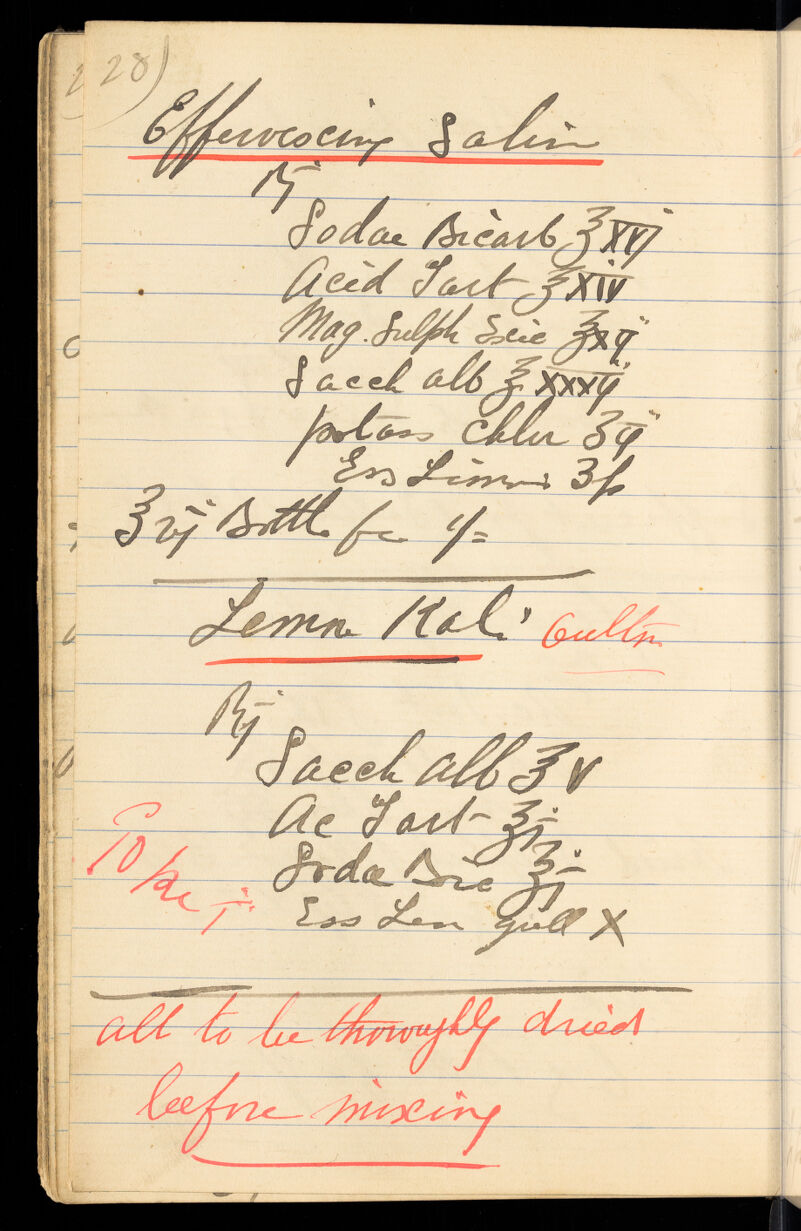 28)
Effervescing Salin
℞j
Sodae Bicarb ℥xvj
Acid Tart ℥xiv
Mag. Sulph Exsic ℥xij
Sacch alb ℥xxxij
potass Chlor ʒij
Ess Limonis ʒſs
℥vj Bottle for 1/=
Lemon Kali
℞j
Sacch alb ℥v
Ac Tart ℥j
Soda Bic ℥j
Ess Lem gutt X
all to be thoroughly dried
before mixing